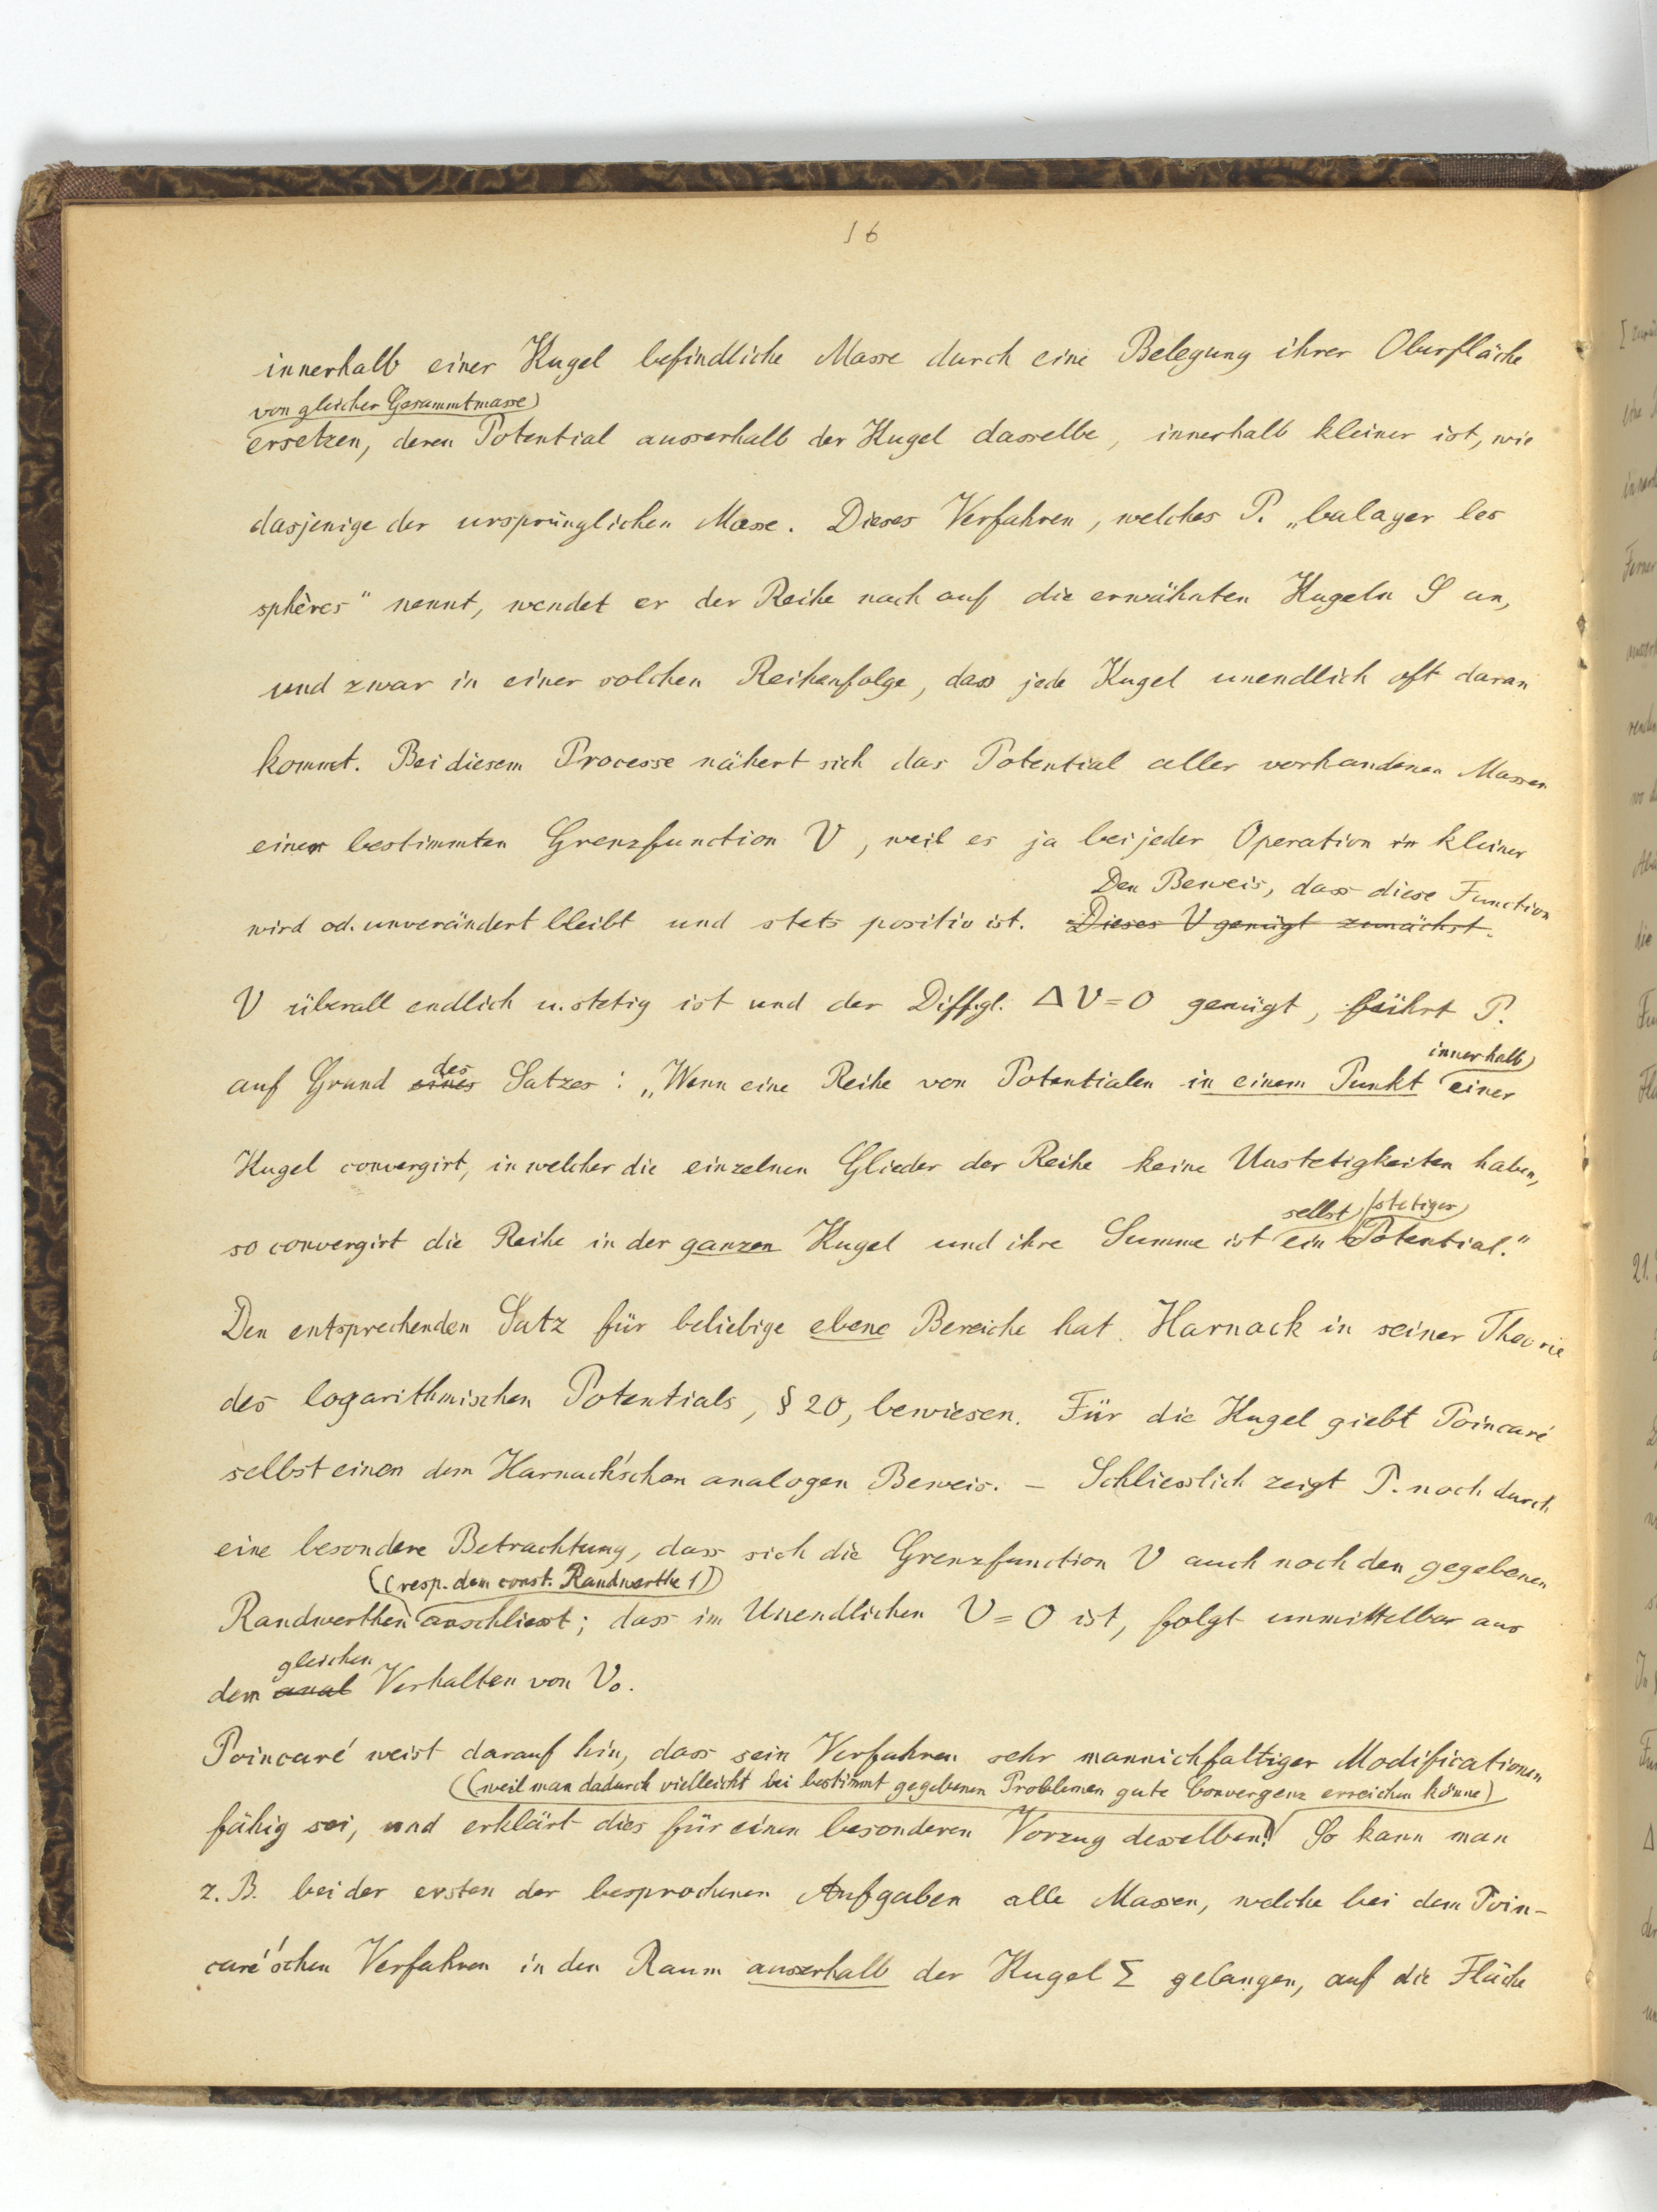 16
innerhalb einer Kugel befindliche Masse durch eine Belegung ihrer Oberfläche
von gleicher Gesammtmasse
ersetzen, deren Potential ausserhalb der Kugel dasselbe, innerhalb kleiner ist, wie
dasjenige der ursprünglichen Masse. Dieses Verfahren, welches P. „balayer les
sphères" nennt, wendet er der Reihe nach auf die erwähnten Kugeln S an,
und zwar in einer solchen Reihenfolge, dass jede Kugel unendlich oft daran
kommt. Bei diesem Processe nähert sich das Potential aller vorhandenen Massen
einer bestimmten Grenzfunction V, weil es ja bei jeder Operation in kleiner
Den Beweis, dass diese Function
wird od. unverändert bleibt und stets positiv ist. Dieses V genügt zunächst.
V überall endlich u. stetig ist und der Diffgl. ΔV=0 genügt, führt P.
des innerhalb
auf Grund eines Satzes: „Wenn eine Reihe von Potentialen in einem Punkt einer
Kugel convergirt, in welcher die einzelnen Glieder der Reihe keine Unstetigkeiten haben,
selbst stetiges
so convergirt die Reihe in der ganzen Kugel und ihre Summe ist ein Potential."
Den entsprechenden Satz für beliebige ebene Bereiche hat Harnack in seiner Theorie
des logarithmischen Potentials, § 20, bewiesen. Für die Kugel giebt Poincaré
selbst einen dem Harnack'schen analogen Beweis. – Schliesslich zeigt P. noch durch
eine besondere Betrachtung, dass sich die Grenzfunction V auch noch den gegebenen
(resp. dem const. Randwerthe 1)
Randwerthen anschliesst; dass im Unendlichen V=0 ist, folgt unmittelbar aus
gleichen
dem anal Verhalten von V₀.
Poincaré weist darauf hin, dass sein Verfahren sehr mannichfaltiger Modificationen
(weil man dadurch vielleicht bei bestimmt gegebenen Problemen gute Convergenz erreichen könne)
fähig sei, und erklärt dies für einen besonderen Vorzug desselben. So kann man
z. B. bei der ersten der besprochenen Aufgaben alle Massen, welche bei dem Poin-
caré'schen Verfahren in den Raum ausserhalb der Kugel Σ gelangen, auf die Fläche